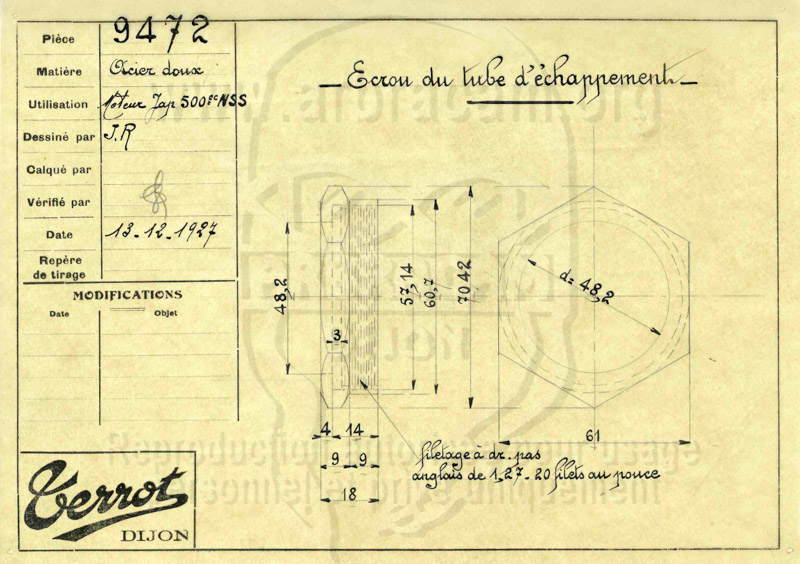 Pièce 9472
Matière Acier doux
Utilisation Moteur Jap 500cc NSS
Dessiné par J.R
Calqué par
Vérifié par
Date 13-12-1927
Repère
de tirage
MODIFICATIONS
Date Objet
Terrot
DIJON
Ecrou du tube d'échappement
48,2
3
57,14
60,7
70 42
d= 48,2
61
4 14
9 9
18
filetage à dr. pas
anglais de 1,27 - 20 filets au pouce
Reproduction autorisée pour usage
personnel et privé uniquement
DIJON